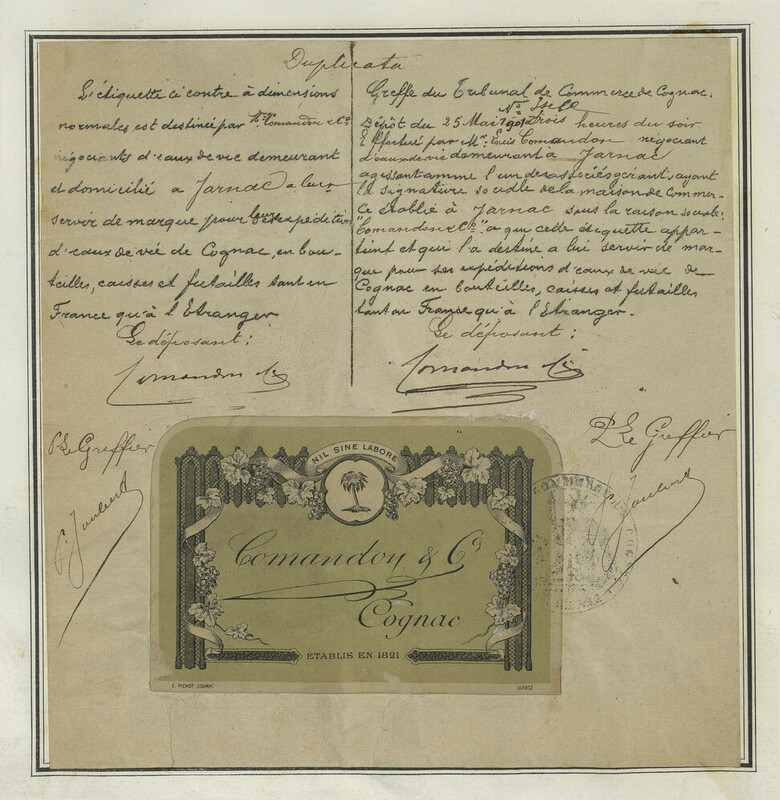 Duplicata
L'étiquette ci contre à dimensions
normales est destinée par Mr Comandon & Co
négociants d'eaux de vie demeurant
et domicilié a Jarnac a leur
servir de marque pour leurs expéditions
d'eaux de vie de Cognac, en bou-
teilles, caisses et futailles tant en
France qu'à l'Etranger
Le déposant :
Comandon & Co
Greffe du Tribunal de Commerce de Cognac.
No
Dépôt du 25 Mai trois heures du soir
Effectué par Mr. Louis Comandon négociant
d'eaux de vie demeurant a Jarnac
agissant comme l'un des associés gérants, ayant
la signature sociale de la maison de Commer-
ce établie à Jarnac sous la raison sociale:
"Comandon & Co" a qui cette étiquette appar-
tient et qui l'a destine a lui servir de mar-
que pour ses expéditions d'eaux de vie de
Cognac en bouteilles, caisses et futailles
tant en France qu'à l'Etranger.
Le déposant :
Comandon & Co
P. Le Greffier
P. Le Greffier
NIL SINE LABORE
Comandon & Co
Cognac
ETABLIS EN 1821
E. PICHOT COGNAC
DÉPOSÉ